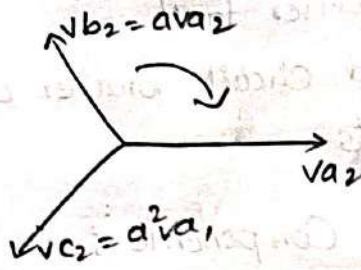 Vb₂ = aVa₂
Va₂
Vc₂ = a²Va₁